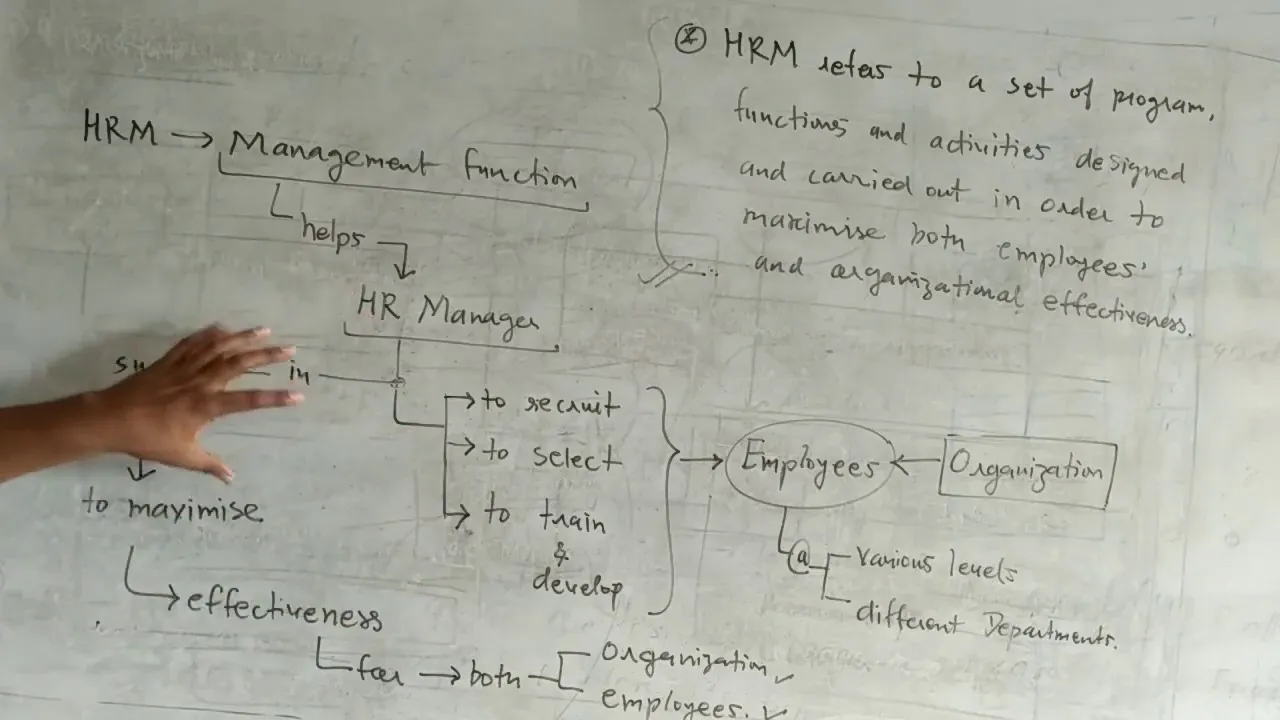 HRM → Management function
helps
HR Manager
in
→ to recruit
→ to select
→ to train
&
develop
to mayimise
→ effectiveness
for → both
Organization ✓
employees. ✓
→ Employees ← Organization
@
various levels
different Departments.
HRM refers to a set of program,
functions and activities designed
and carried out in order to
maximise both employees'
and organizational effectiveness.